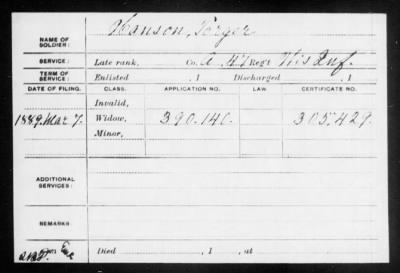 NAME OF SOLDIER: Hanson, Torger
SERVICE: Late rank, Co. A 47 Reg't Wis Inf.
TERM OF SERVICE: Enlisted , 1 Discharged , 1
DATE OF FILING. CLASS. APPLICATION NO. LAW. CERTIFICATE NO.
Invalid,
1889. Mar 7. Widow, 390.140. 305.429.
Minor,
ADDITIONAL SERVICES:
REMARKS:
Died , 1 , at